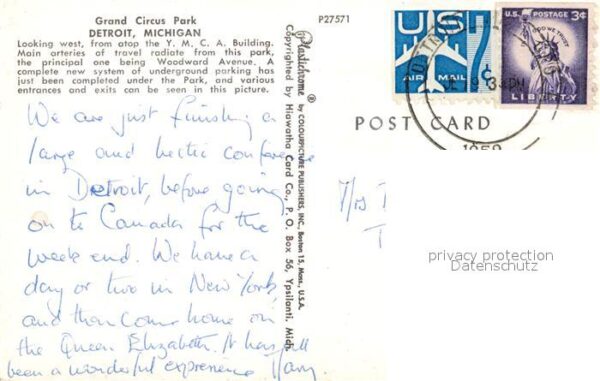 Grand Circus Park
DETROIT, MICHIGAN
Looking west, from atop the Y. M. C. A. Building.
Main arteries of travel radiate from this park,
the principal one being Woodward Avenue. A
complete new system of underground parking has
just been completed under the Park, and various
entrances and exits can be seen in this picture.
P27571
We are just finishing a
large and hectic conference
in Detroit, before going
on to Canada for the
week end. We have a
day or two in New York,
and then come home on
the Queen Elizabeth. It has all
been a wonderful experience Harry
Plastichrome ® by COLOURPICTURE PUBLISHERS, INC., Boston 15, Mass., U.S.A.
Copyrighted by Hiawatha Card Co., P. O. Box 56, Ypsilanti, Mich.
US
7¢
AIR MAIL
U.S. POSTAGE 3¢
IN GOD WE TRUST
LIBERTY
POST CARD
1959
privacy protection
Datenschutz